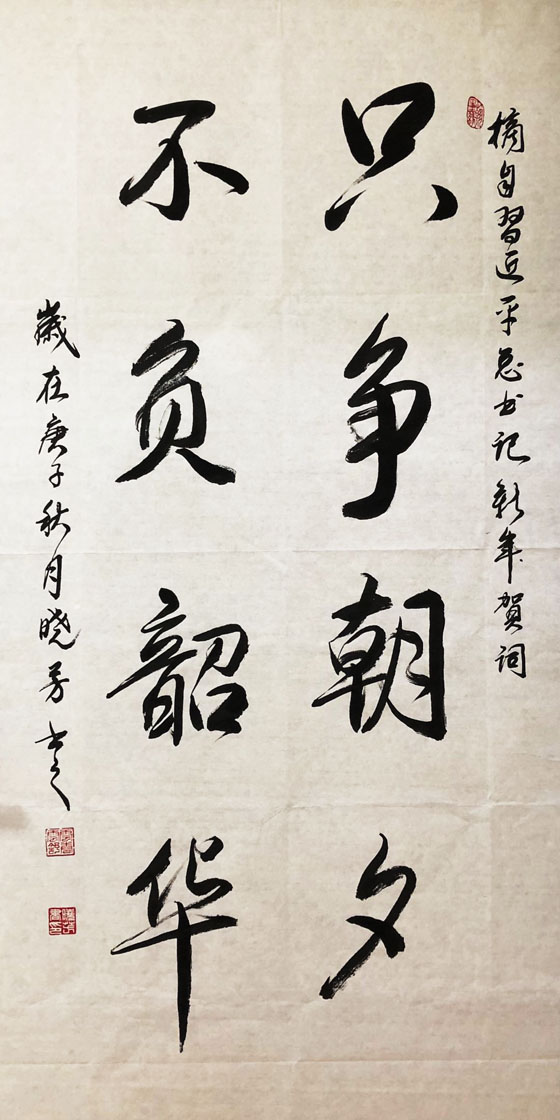 摘自习近平总书记新年贺词
只争朝夕
不负韶华
岁在庚子秋月晓芳书